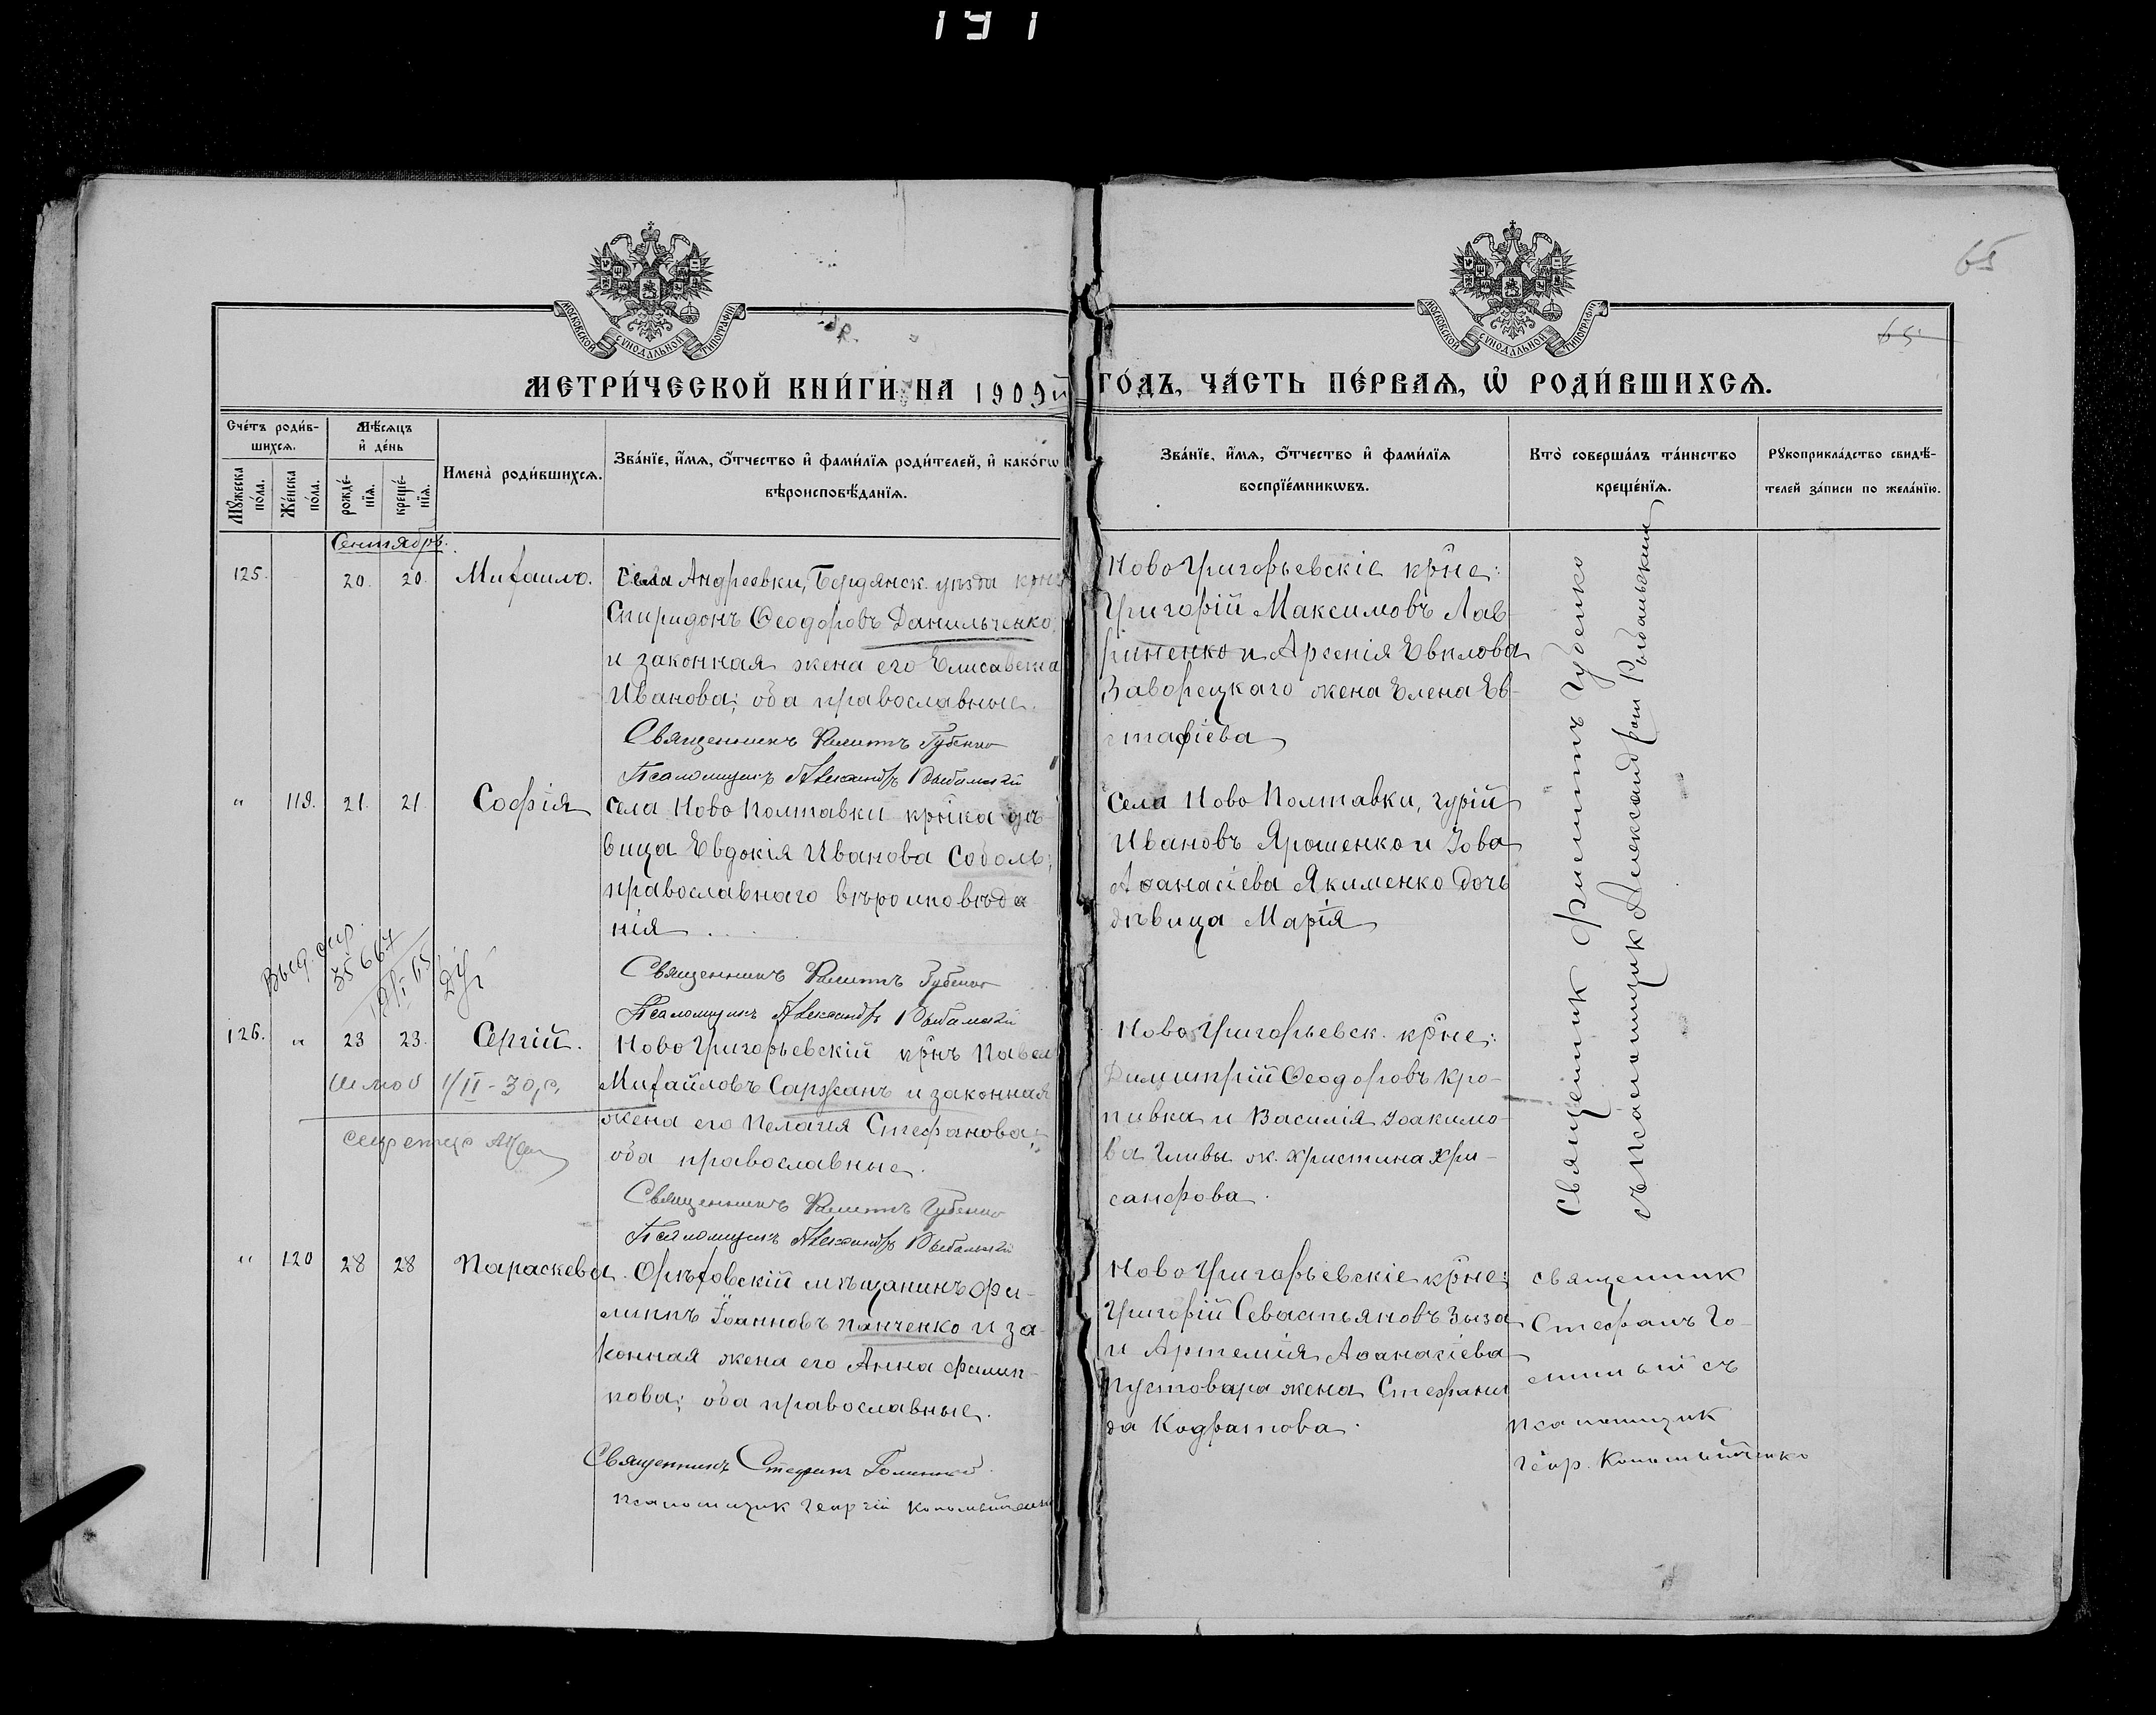 191
65
65
МОСКОВСКОЙ СѴНОДАЛЬНОЙ ТИПОГРАФІИ
МОСКОВСКОЙ СѴНОДАЛЬНОЙ ТИПОГРАФІИ
МЕТРИ́ЧЕСКОЙ КНИ́ГИ НА 1909й ГО́ДЪ, ЧА́СТЬ ПЕ́РВАѦ, Ѡ҆ РОДИ́ВШИХСѦ.
Сче́тъ роди́в-
шихсѧ.
Мꙋ́жеска по́ла.
Же́нска по́ла.
Мѣ́сѧцъ
и҆ де́нь
рожде́-нїѧ.
креще́-нїѧ.
Имена̀ роди́вшихсѧ.
Зва́нїе, и҆́мѧ, ѻ҆́тчество и҆ фами́лїѧ роди́телей, и҆ како́гѡ
вѣроисповѣ́данїѧ.
Зва́нїе, и҆́мѧ, ѻ҆́тчество и҆ фами́лїѧ
воспрїе́мникѡвъ.
Кто̀ соверша́лъ та́инство
креще́нїѧ.
Рꙋкоприкла́дство свидѣ́-
телей за́писи по жела́нїю.
Сентябрь.
125. 20. 20. Михаилъ.
Села Андреевки, Бердянск. уѣзда крнъ
Спиридонъ Ѳеодоровъ Данильченко,
и законная жена его Елисавета
Иванова; оба православные.
Священникъ Филиппъ Губенко
Псаломщикъ Александръ Рыбальскій
Новогригорьевскіе крне:
Григорій Максимовъ Лав-
риненко и Арсенія Евилова
Заворецкаго жена Елена Ев-
стафіева
Священник Филиппъ Губенко
съ псаломщик Александром Рыбальским
" 119. 21. 21. Софія
Села Ново Полтавки крнка дѣ-
вица Евдокія Иванова Соболь;
православнаго вѣроисповѣда-
нія
Священникъ Филиппъ Губенко
Псаломщикъ Александръ Рыбальскій
Села Ново Полтавки, Гурій
Ивановъ Ярошенко и Іова
Аѳанасіева Якименко дочь
дѣвица Марія
35667
126. " 23 23. Сергій.
Новогригорьевскій крнъ Павелъ
Михайловъ Саржанъ и законная
жена его Пелагія Стефанова;
оба православные.
Священникъ Филиппъ Губенко
Псаломщикъ Александръ Рыбальскій
Новогригорьевск. крне:
Димитрій Ѳеодоровъ Кро-
пивка и Василія Іоакимо-
ва Гливы ж. Христина Хри-
санфова.
1/II-30 г.
" 120 28 28 Параскева.
Орѣховскій мѣщанинъ Фи-
липпъ Іоанновъ Панченко и за-
конная жена его Анна Филип-
пова; оба православные.
Священникъ Стефанъ
Псаломщик Георгій Коломыйченко
Новогригорьевскіе крне:
Григорій Севастьяновъ Зыза
и Артемія Аѳанасіева
Пустовара жена Стефани-
да Кодратова.
священник
Стефанъ Го-
съ
псаломщик
Геор. Коломыйченко